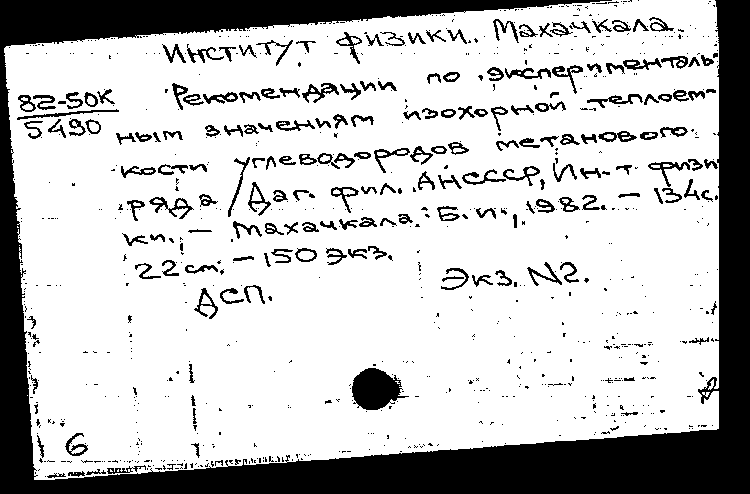 Институт физики. Махачкала.
82-50К
5490
Рекомендации по эксперименталь-
ным значениям изохорной теплоем-
кости углеводородов метанового
ряда / Даг. фил. АНСССР, Ин-т физи
ки. – Махачкала: Б. и., 1982. – 134с.
22 cm. – 150 экз.
ДСП.
Экз. N2.
6